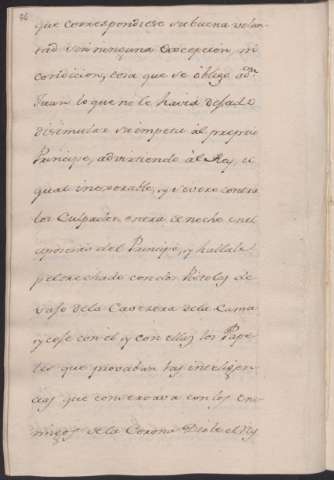 86
que correspondiese su buena volun-
tad sin ninguna excepcion, ni
condicion, cosa que se obligo a Dn
Juan lo que no le havia dejado
disimular su impetu al propio
Principe, advirtiendo al Rey, ei
qual inexorable, y severo contra
los Culpados entra de noche en el
aposento del Principe, y hallale
peltrechado con dos Pistolas de
vajo de la Cavezera de la Cama
y cose con el y con ellas los Pape-
les que provaban las inteligen-
cias que conservava con los ene-
migos de la Corona Diole el Rey